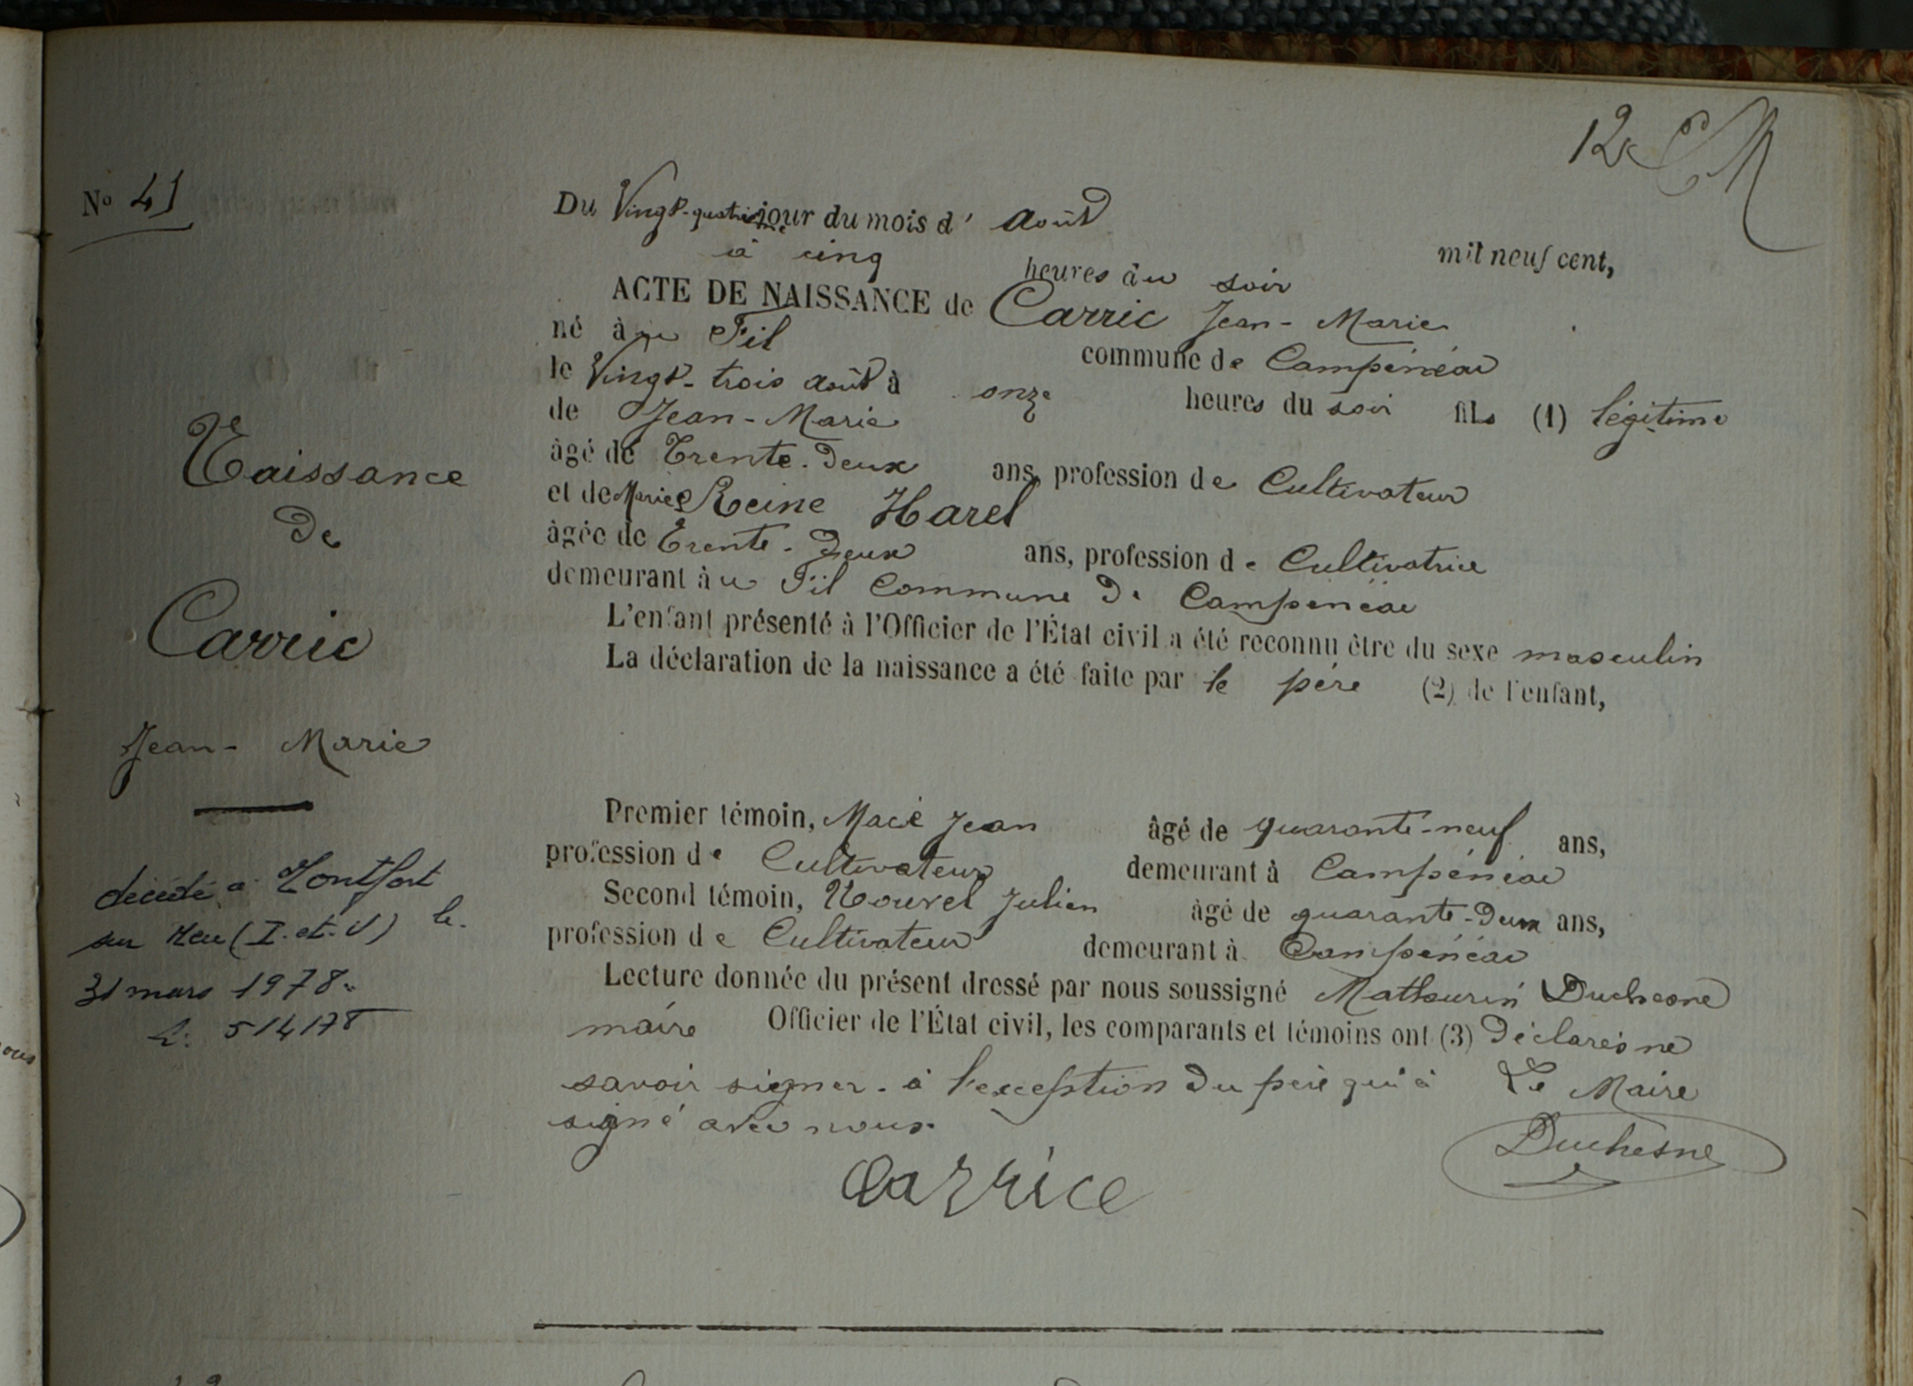 12
No 41
Du Vingt-quatrième jour du mois d' août mil neuf cent,
à cinq heures du soir
ACTE DE NAISSANCE de Carric Jean-Marie
né au Fil commune de Campénéac
le Vingt-trois août à onze heures du soir fils (1) légitime
de Jean-Marie
âgé de Trente-deux ans, profession de Cultivateur
et de Marie Reine Harel
âgée de Trente-deux ans, profession de Cultivatrice
demeurant au Fil Commune de Campénéac
L'enfant présenté à l'Officier de l'État civil a été reconnu être du sexe masculin
La déclaration de la naissance a été faite par le père (2) de l'enfant,
Premier témoin, Macé Jean âgé de quarante-neuf ans,
profession de Cultivateur demeurant à Campénéac
Second témoin, Nouvel Julien âgé de quarante-deux ans,
profession de Cultivateur demeurant à Campénéac
Lecture donnée du présent dressé par nous soussigné Mathurin Duchesne
maire Officier de l'État civil, les comparants et témoins ont (3) déclarés ne
savoir signer. à l'exception du père qui a
signé avec nous.
Le Maire
Duchesne
Carrice
Naissance
de
Carric
Jean-Marie
décédé à Montfort
sur Meu (I.-et-V) le
31 mars 1978.